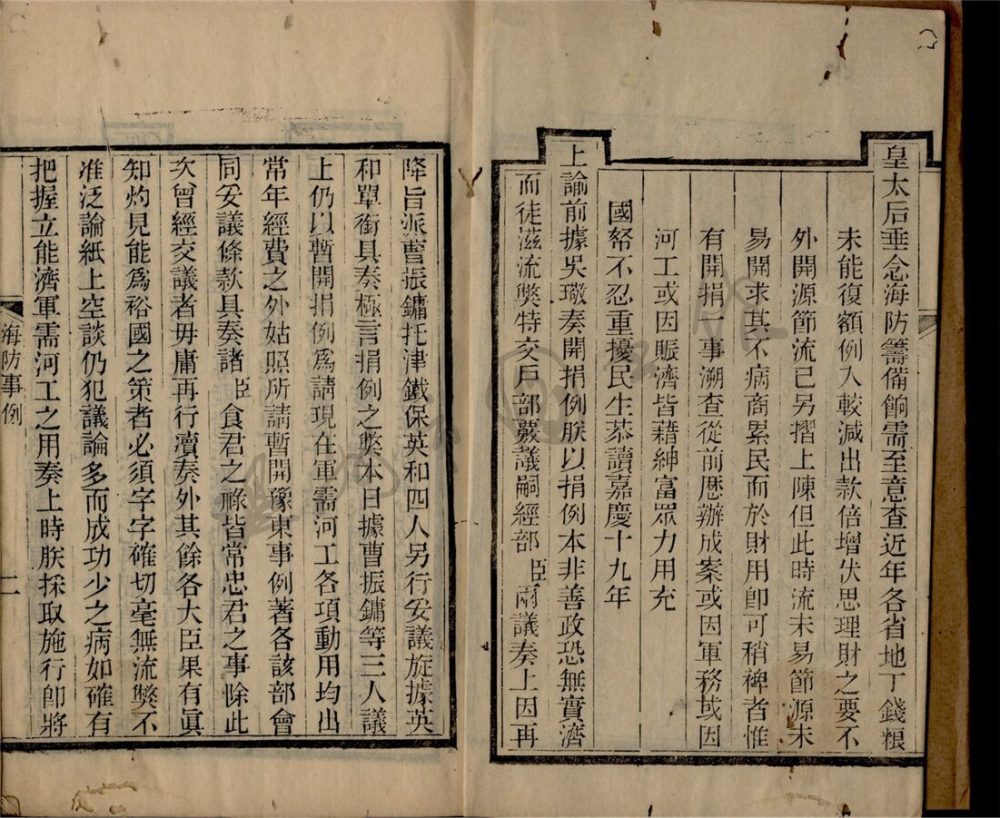 皇太后垂念海防籌備餉需至意查近年各省地丁錢粮
未能復額例入較減出款倍增伏思理財之要不
外開源節流已另摺上陳但此時流未易節源未
易開求其不病商累民而於財用卽可稍裨者惟
有開捐一事溯查從前歷辦成案或因軍務或因
河工或因賑濟皆藉紳富眾力用充
國帑不忍重擾民生恭讀嘉慶十九年
上諭前據吳璥奏開捐例朕以捐例本非善政恐無實濟
而徒滋流獘特交戶部嚴議嗣經部臣兩議奏上因再
降旨派曹振鏞托津鐵保英和四人另行妥議旋據英
和單銜具奏極言捐例之獘本日據曹振鏞等三人議
上仍以暫開捐例爲請現在軍需河工各項動用均出
常年經費之外姑照所請暫開豫東事例著各該部會
同妥議條款具奏諸臣食君之祿皆常忠君之事除此
次曾經交議者毋庸再行瀆奏外其餘各大臣果有眞
知灼見能爲裕國之策者必須字字確切毫無流獘不
准泛論紙上空談仍犯議論多而成功少之病如確有
把握立能濟軍需河工之用奏上時朕採取施行卽將
海防事例
二